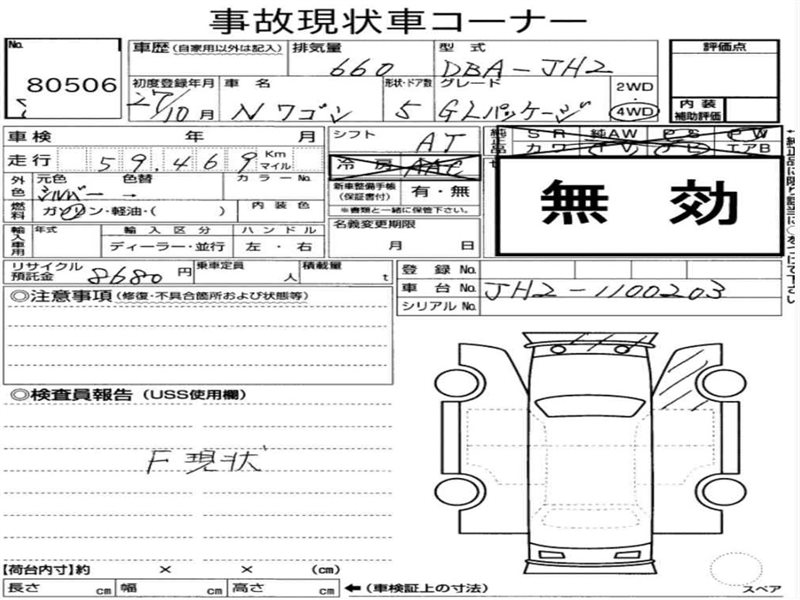 事故現状車コーナー
No.
80506
車歴 (自家用以外は記入)
排気量
660
型式
DBA-JH2
評価点
初度登録年月
27/10月
車名
Nワゴン
形状・ドア数
5
グレード
GLパッケージ
2WD
4WD
内装
補助評価
車検 年 月
シフト
AT
純正品
SR
純AW
PS
PW
カワ
TV
ナビ
エアB
走行
59,469
Km
マイル
冷房
AAC
外色
元色
色替
シルバー →
カラーNo.
新車整備手帳
(保証書付)
有・無
※書類と一緒に保管下さい。
無効
燃料
ガソリン・軽油・( )
内装色
名義変更期限
月 日
輸入車用
年式
輸入区分
ハンドル
ディーラー・並行
左・右
リサイクル
預託金
8680円
乗車定員
人
積載量
t
登録No.
車台No.
JH2-1100203
シリアルNo.
◎注意事項(修復・不具合箇所および状態等)
◎検査員報告(USS使用欄)
F現状
【荷台内寸】約 × × (cm)
長さ cm 幅 cm 高さ cm
←(車検証上の寸法)
スペア